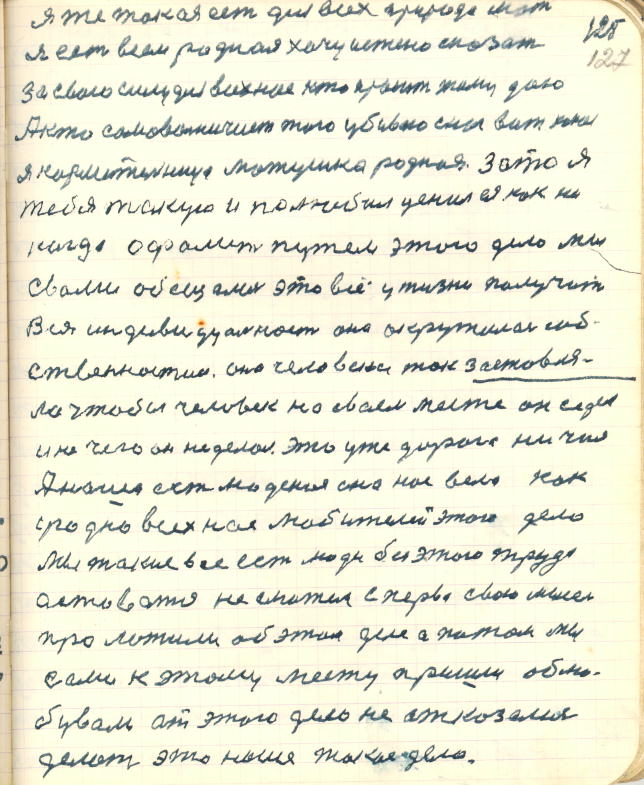 я же такая ест для всех природа мат
125
я ест всем родная хочу истено сказат
127
за свою силу для всех нас кто просит тому даю
А кто самоволничиет того убиваю
я кормителница матушка родная. Зато я
тебя такую и полюбил ценил ея как ни
когда офромит путем этого дело мы
своими обещами это всё у жизни получит
Вся индевидуалност она окружилас соб-
ственностию. она человека так заставля-
ла чтобы человек на своем месте он седел
и не чего он не делал. это уже дорога ничия
А наша ест люденая она нас вела как
родно всех нас любителей этого дело
мы такие все ест люди без этого труда
астоватя не сможем сперва свою мысл
проложили об этом деле а потом мы
сами к этому месту пришли облю-
бувале ат этого дело не атказался
делат это наше такое дело.